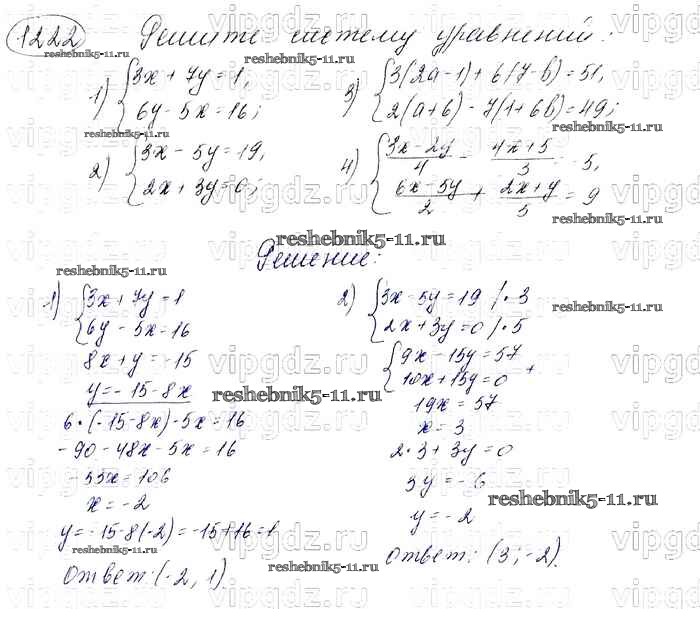 1222 Решите систему уравнений:
1) { 3x + 7y = 1,
6y - 5x = 16;
2) { 3x - 5y = 19,
2x + 3y = 0;
3) { 3(2a-1) + 6(7-b) = 51,
2(a+6) - 7(1+6b) = 49;
4) { 3x-2y/4 - 4x+5/3 = 5,
6x-5y/2 + 2x+y/5 = 9
Решение:
1) { 3x + 7y = 1
6y - 5x = 16
8x + y = -15
y = -15 - 8x
6·(-15-8x) - 5x = 16
-90 - 48x - 5x = 16
-53x = 106
x = -2
y = -15-8(-2) = -15+16 = 1
Ответ: (-2, 1).
2) { 3x - 5y = 19 /·3
2x + 3y = 0 /·5
{ 9x - 15y = 57
10x + 15y = 0 +
19x = 57
x = 3
2·3 + 3y = 0
3y = -6
y = -2
Ответ: (3; -2).
reshebnik5-11.ru
vipgdz.ru